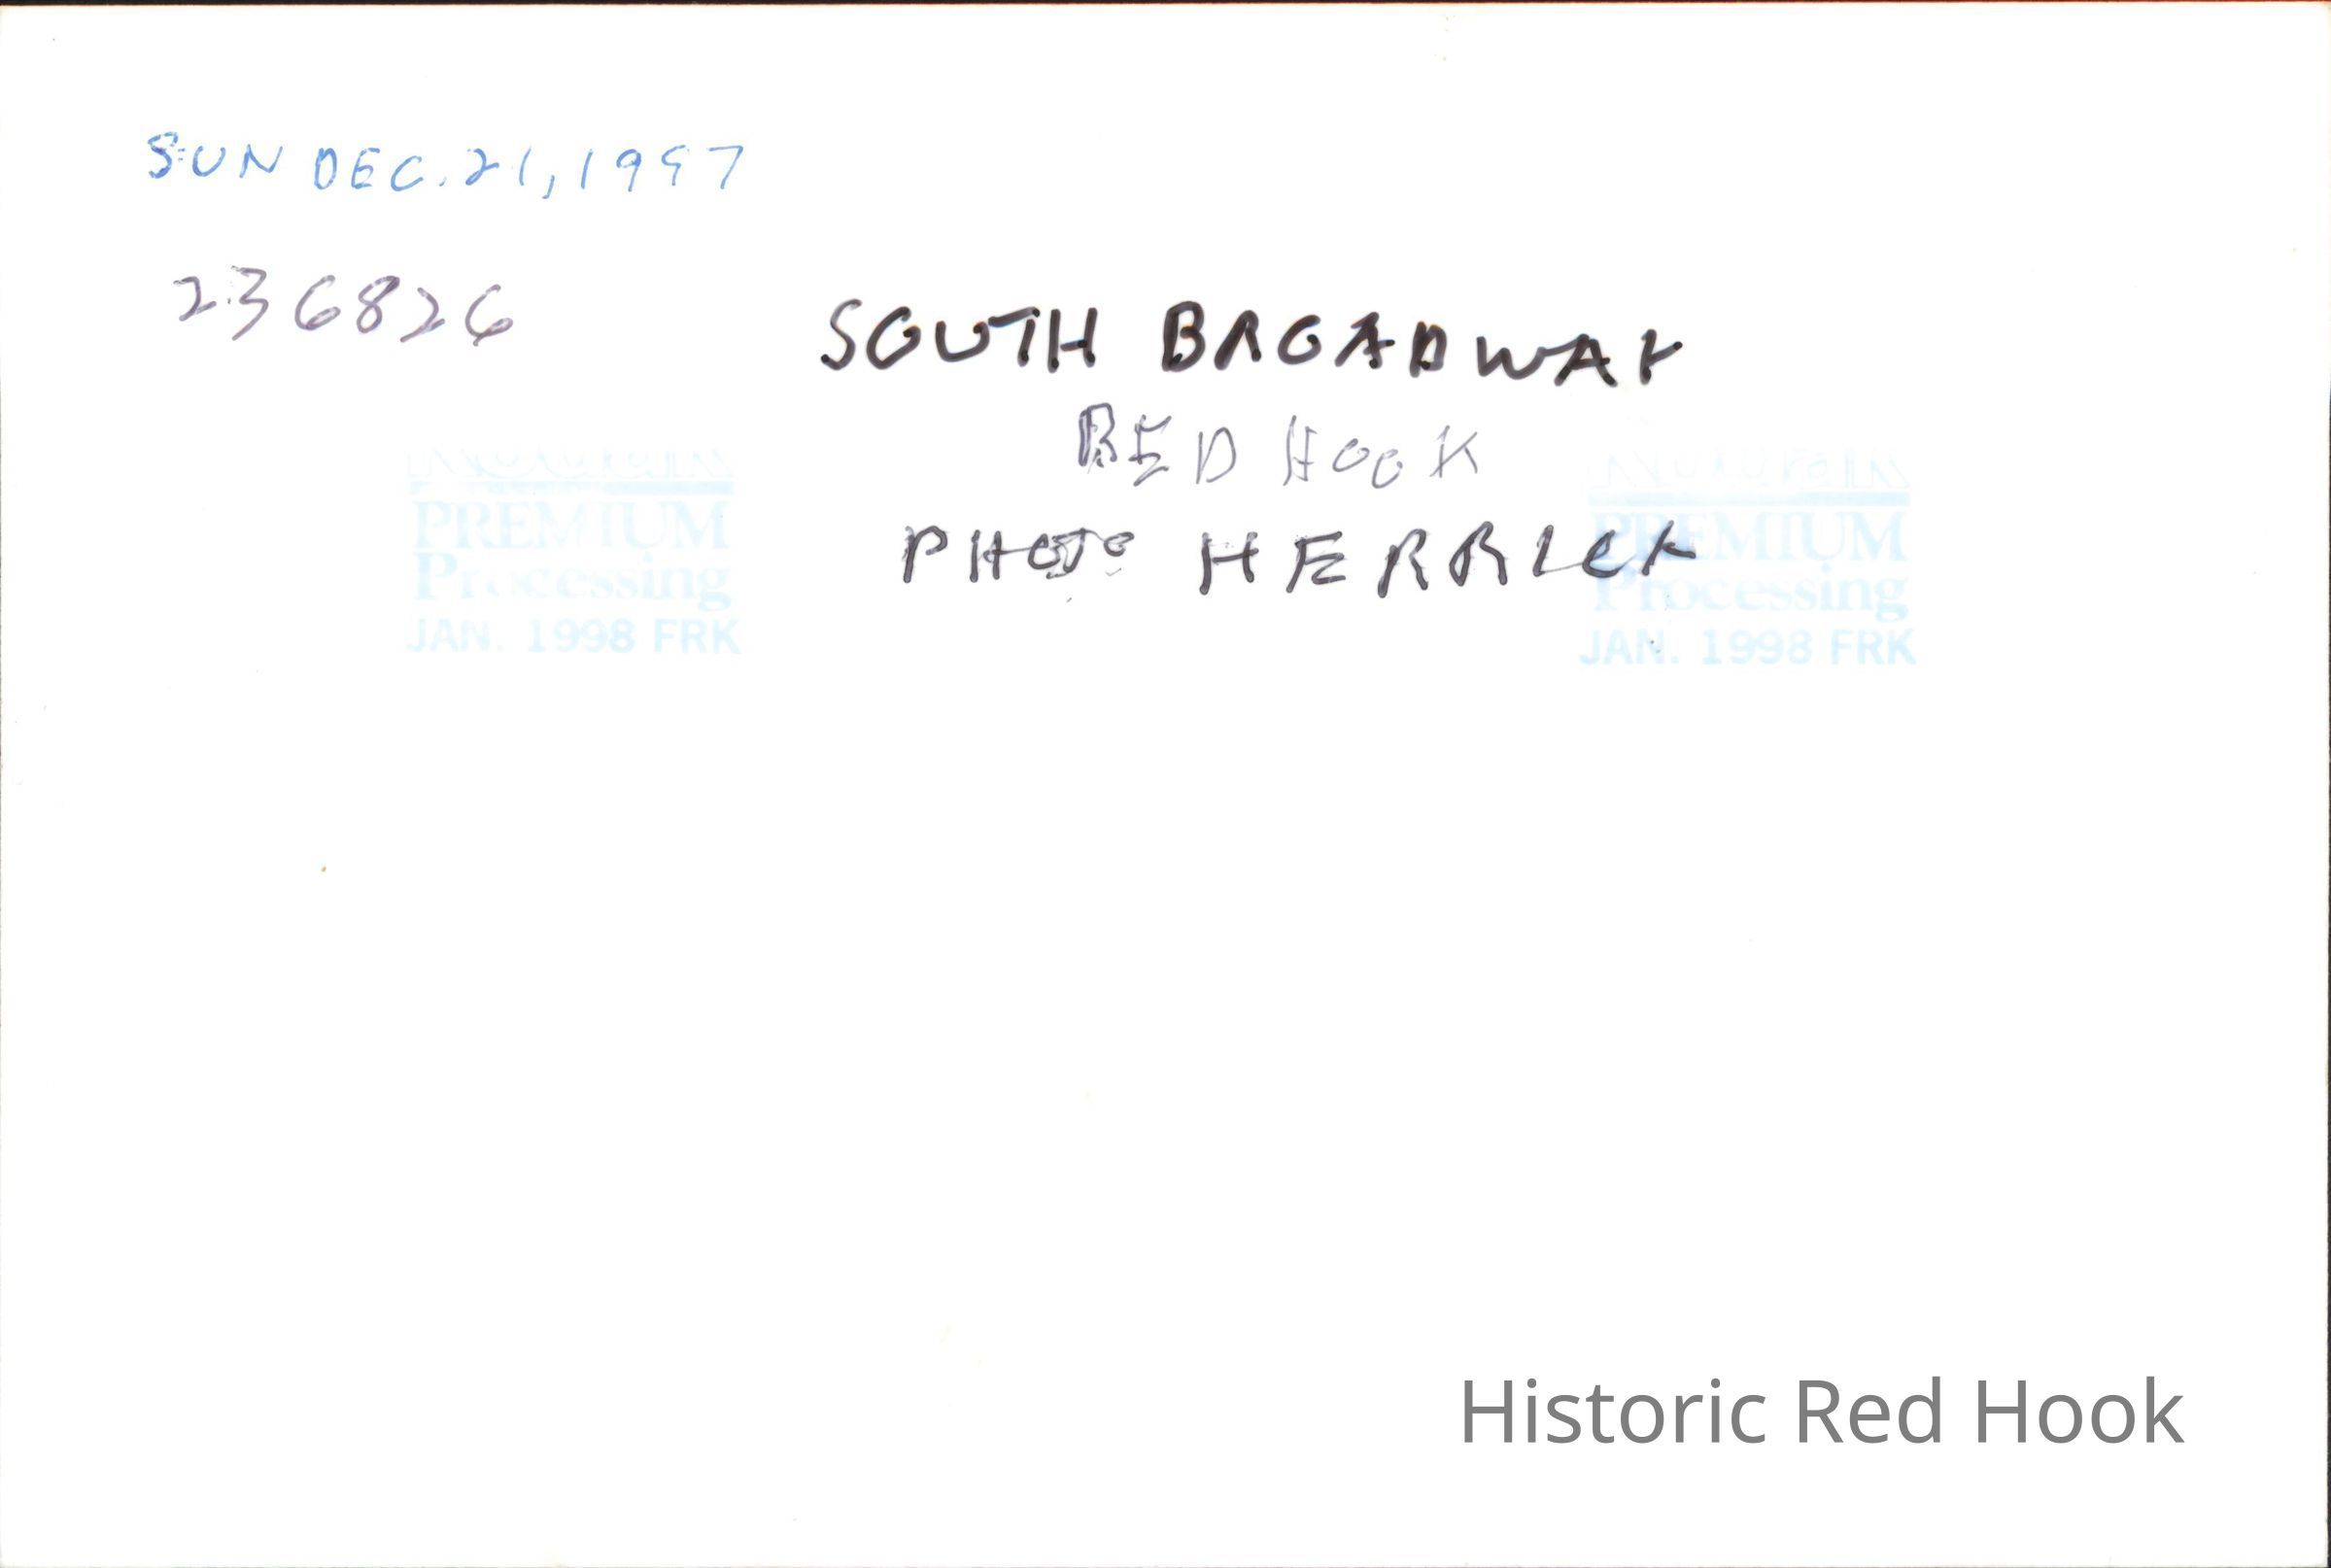 SUN DEC. 21, 1997
236826
SOUTH BROADWAY
RED HOOK
PHOTO HERRICK
Kodak
PREMIUM
Processing
JAN. 1998 FRK
Kodak
PREMIUM
Processing
JAN. 1998 FRK
Historic Red Hook